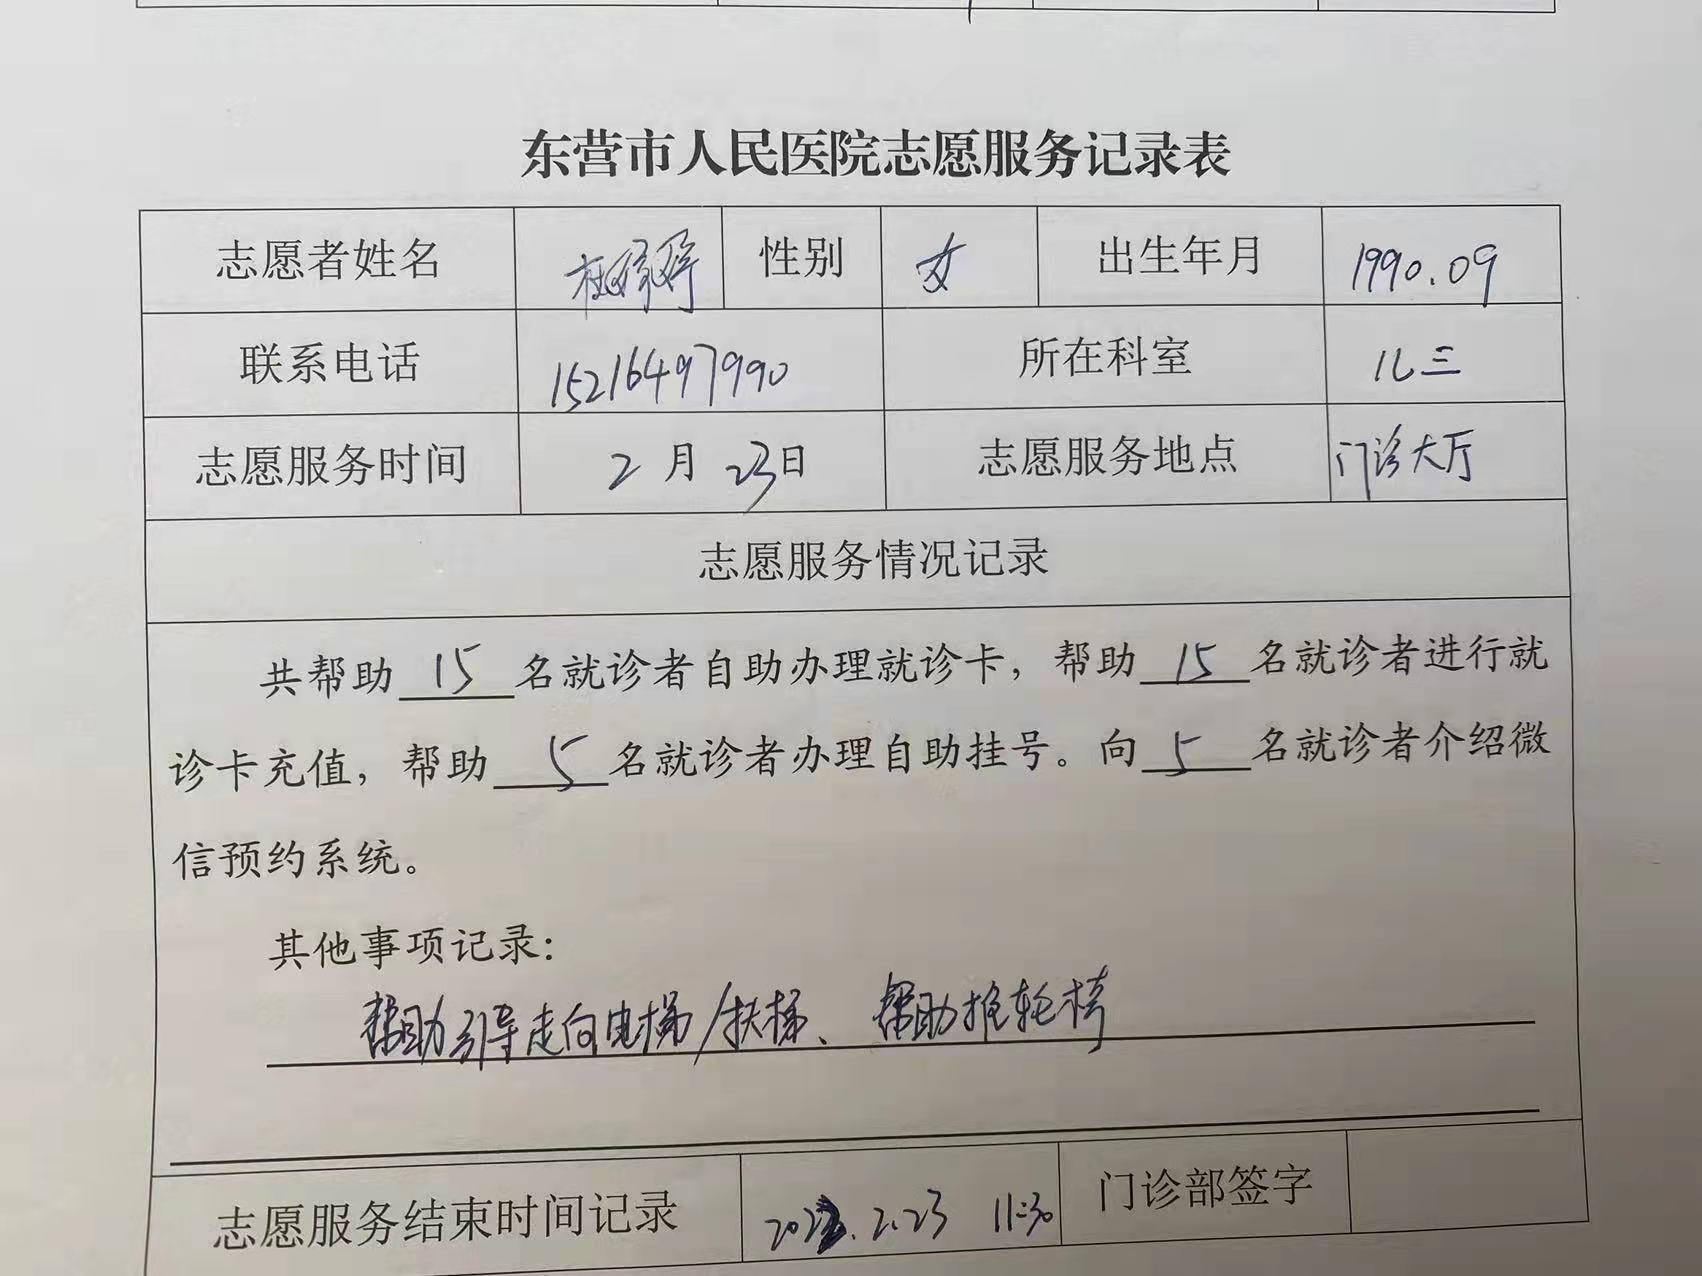 东营市人民医院志愿服务记录表
志愿者姓名 杜婷婷 性别 女 出生年月 1990.09
联系电话 15216497990 所在科室 儿三
志愿服务时间 2月23日 志愿服务地点 门诊大厅
志愿服务情况记录
共帮助15名就诊者自助办理就诊卡，帮助15名就诊者进行就
诊卡充值，帮助5名就诊者办理自助挂号。向5名就诊者介绍微
信预约系统。
其他事项记录：
帮助引导走向电梯/扶梯、帮助推轮椅
志愿服务结束时间记录 2022.2.23 11:30 门诊部签字